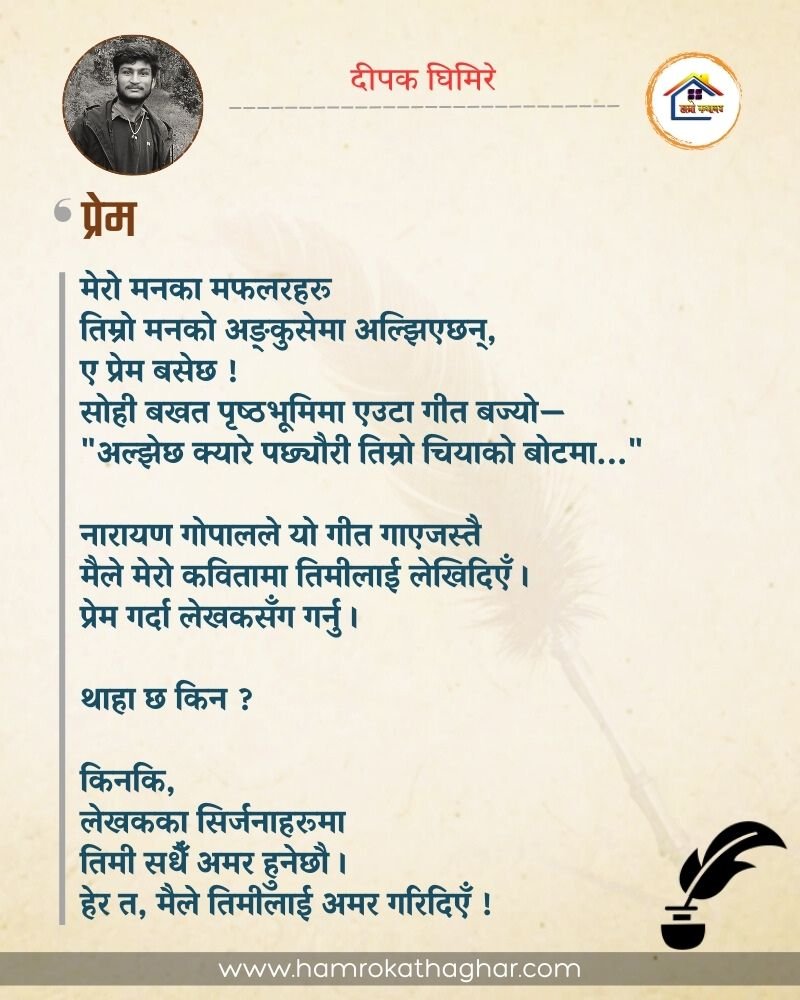 दीपक घिमिरे
हाम्रो कथाघर
प्रेम
मेरो मनका मफलरहरू
तिम्रो मनको अङ्कुसेमा अल्झिएछन्,
ए प्रेम बसेछ !
सोही बखत पृष्ठभूमिमा एउटा गीत बज्यो—
"अल्झेछ क्यारे पछ्यौरी तिम्रो चियाको बोटमा..."
नारायण गोपालले यो गीत गाएजस्तै
मैले मेरो कवितामा तिमीलाई लेखिदिएँ ।
प्रेम गर्दा लेखकसँग गर्नु ।
थाहा छ किन ?
किनकि,
लेखकका सिर्जनाहरूमा
तिमी सधैँ अमर हुनेछौ ।
हेर त, मैले तिमीलाई अमर गरिदिएँ !
www.hamrokathaghar.com